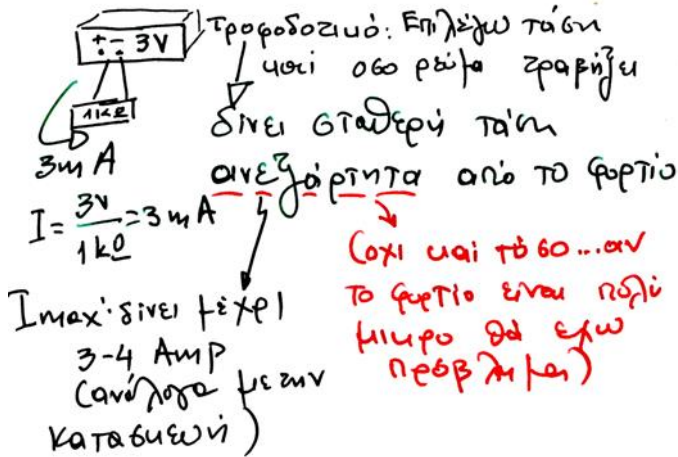 + - 3V
Τροφοδοτικό: Επιλέγω τάση
και οσο ρεύμα τραβήξει
1kΩ
δίνει σταθερή τάση
3m A
ανεξάρτητα από το φορτίο
I = 3V / 1kΩ = 3mA
(οχι και τόσο...αν
το φορτίο είναι πολύ
μικρο θά εχω
προβλημα)
Imax: δίνει μέχρι
3-4 Amp
(ανάλογα με την
κατασκευή)